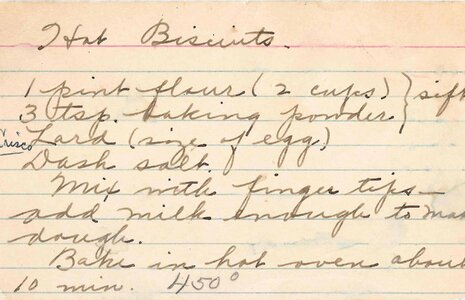 Hot Biscuits.
1 pint flour (2 cups) } sift
3 tsp. baking powder
Crisco Lard (size of egg)
Dash salt.
Mix with finger tips—
add milk enough to
dough.
Bake in hot oven about
10 min. 450°